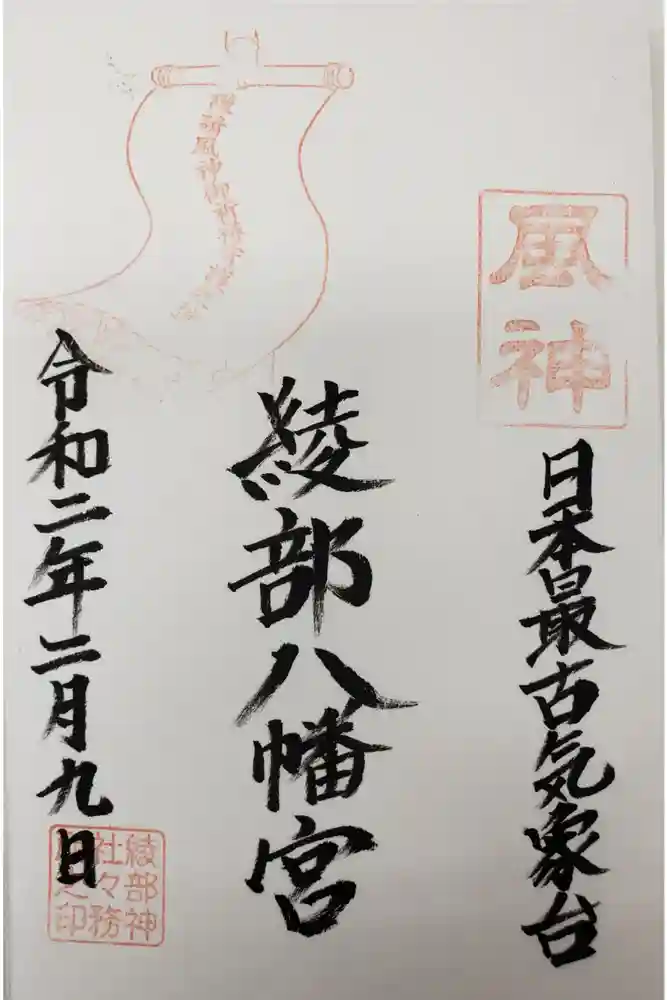 風神
日本最古気象台
綾部八幡宮
令和二年二月九日
綾部神
社々務
之印